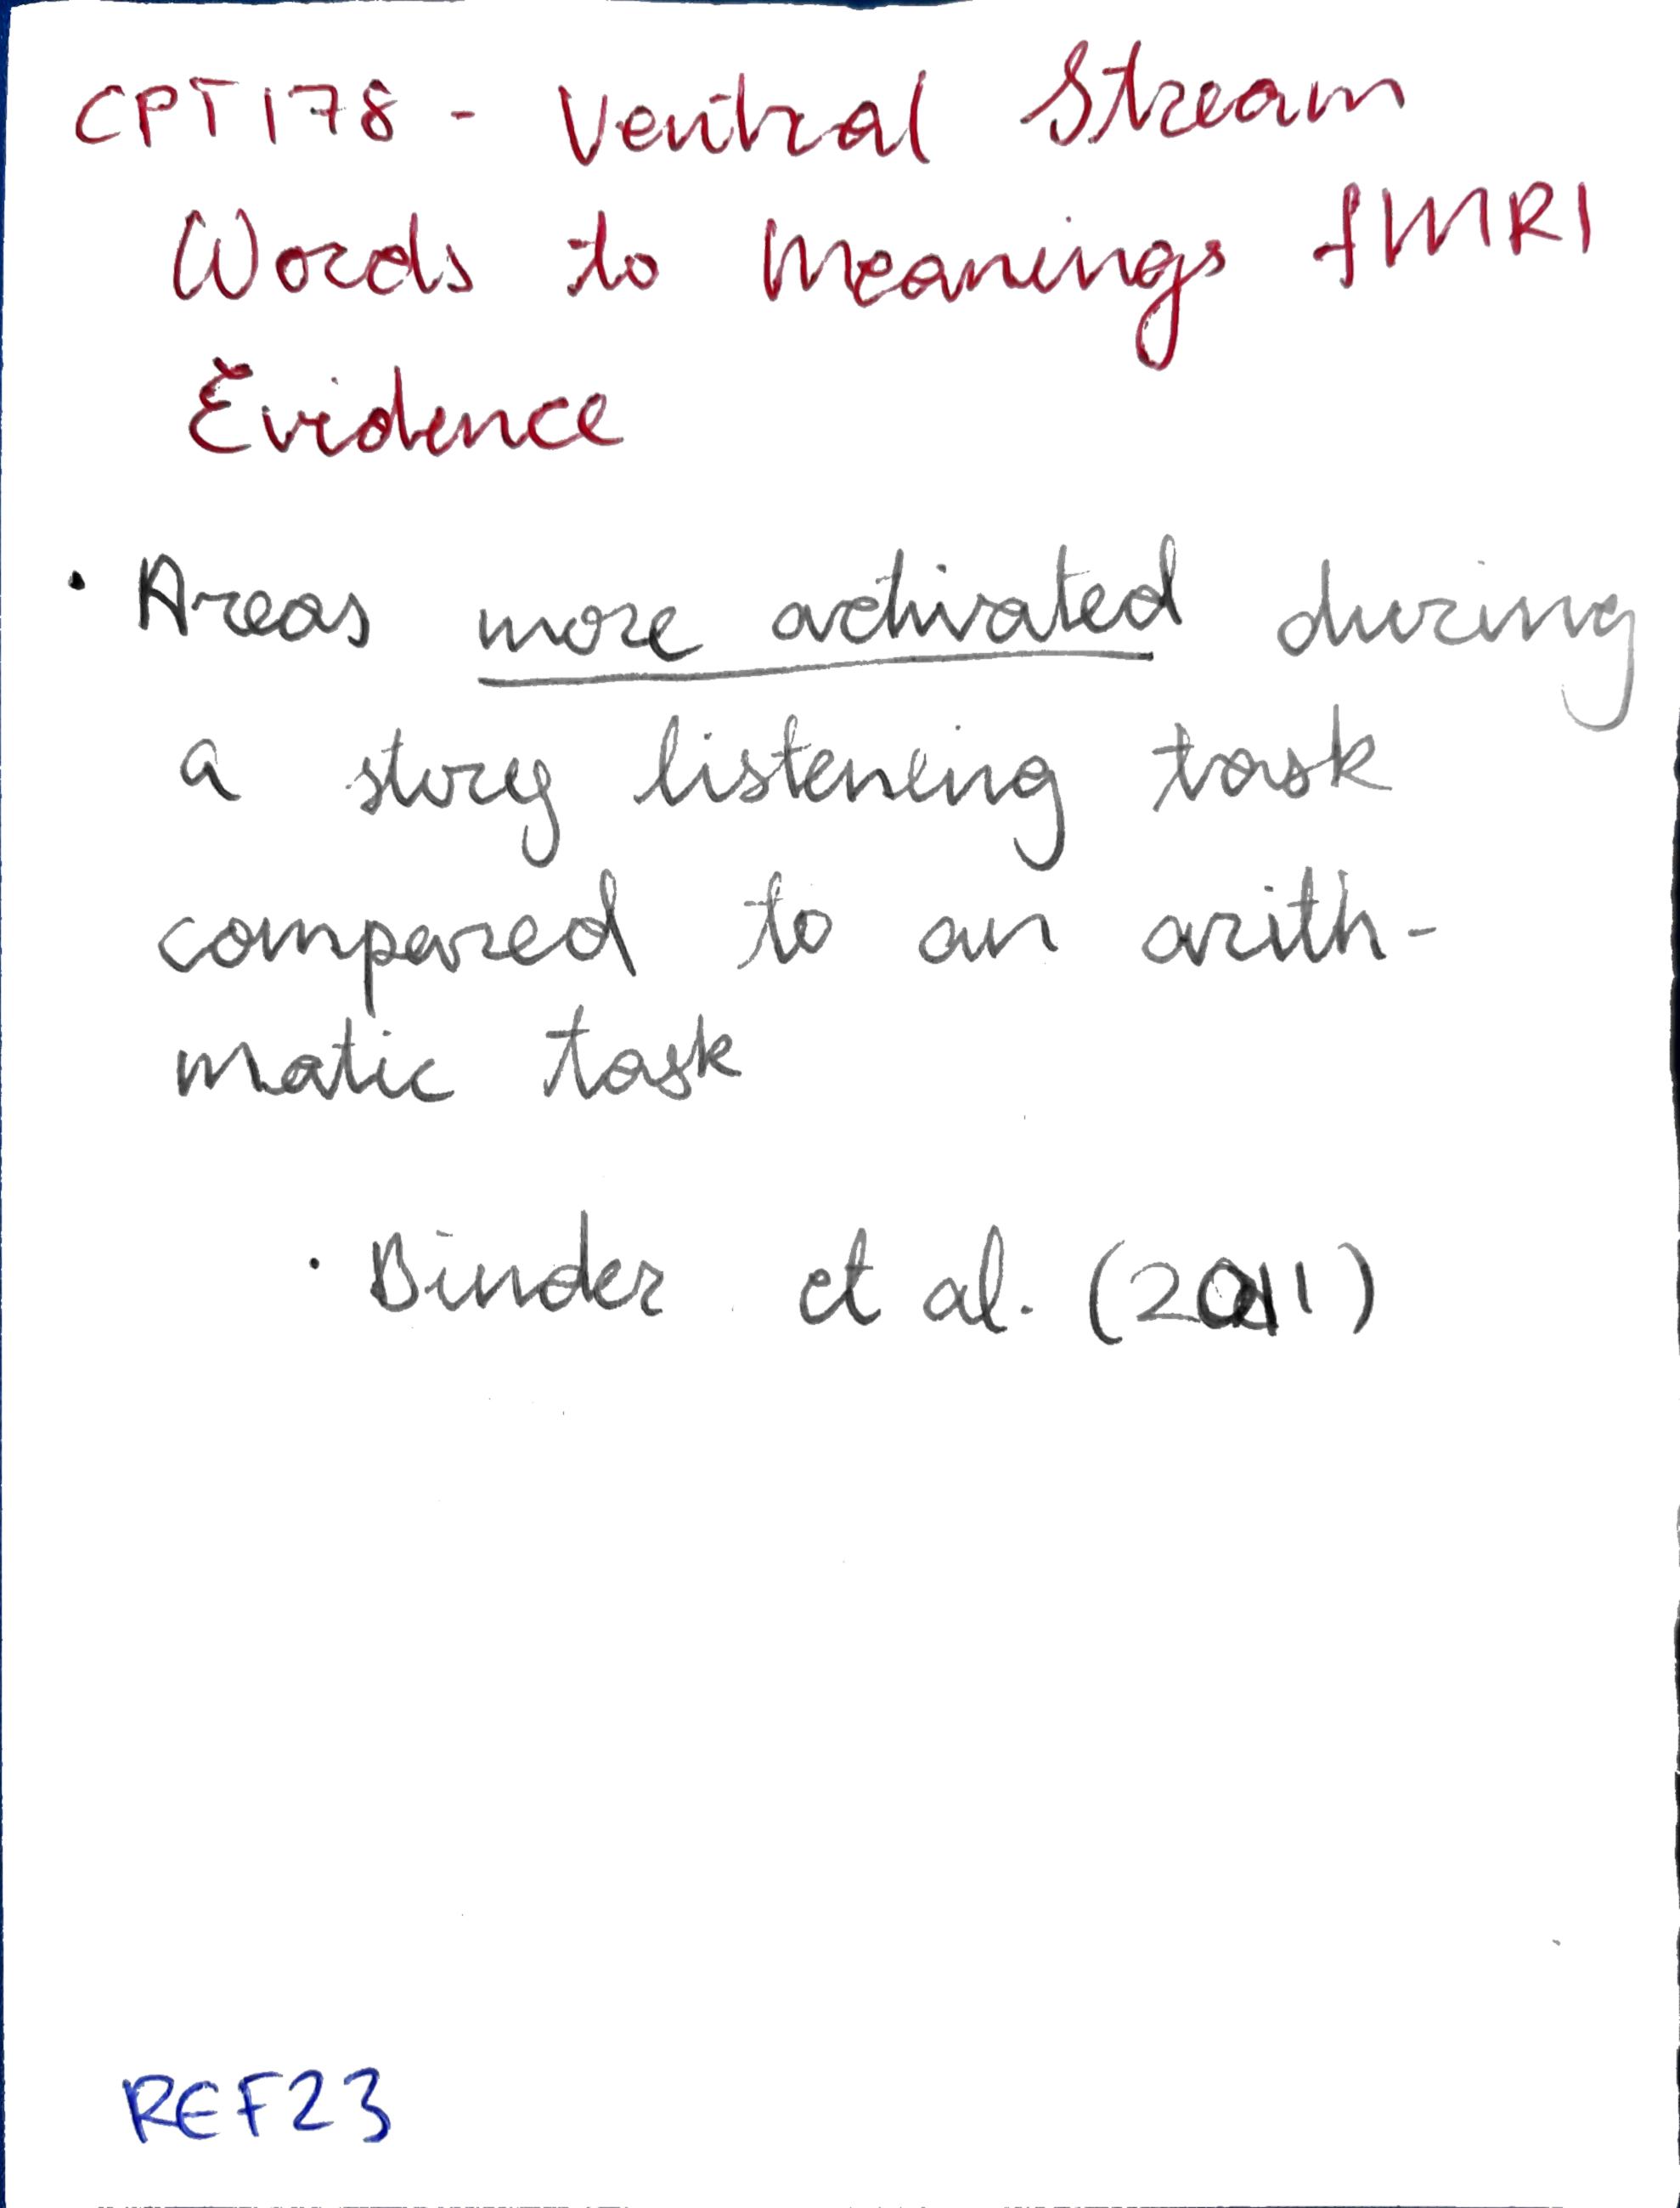 CPT178 - Ventral Stream
Words to Meanings fMRI
Evidence
• Areas more activated during
a story listening task
compared to an arith-
matic task
• Binder et al. (2011)
REF23